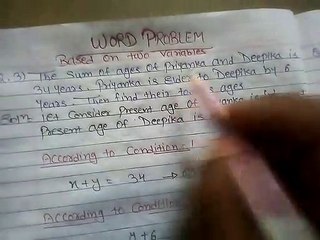 WORD PROBLEM
Based on two variables
Q. 3) The Sum of ages of Priyanka and Deepika is
34 years. Priyanka is elder to Deepika by 6
years. Then find their ages
Soln let Consider Present age of
Present age of Deepika is
According to Condition 1
x + y = 34
According to Condition
y + 6